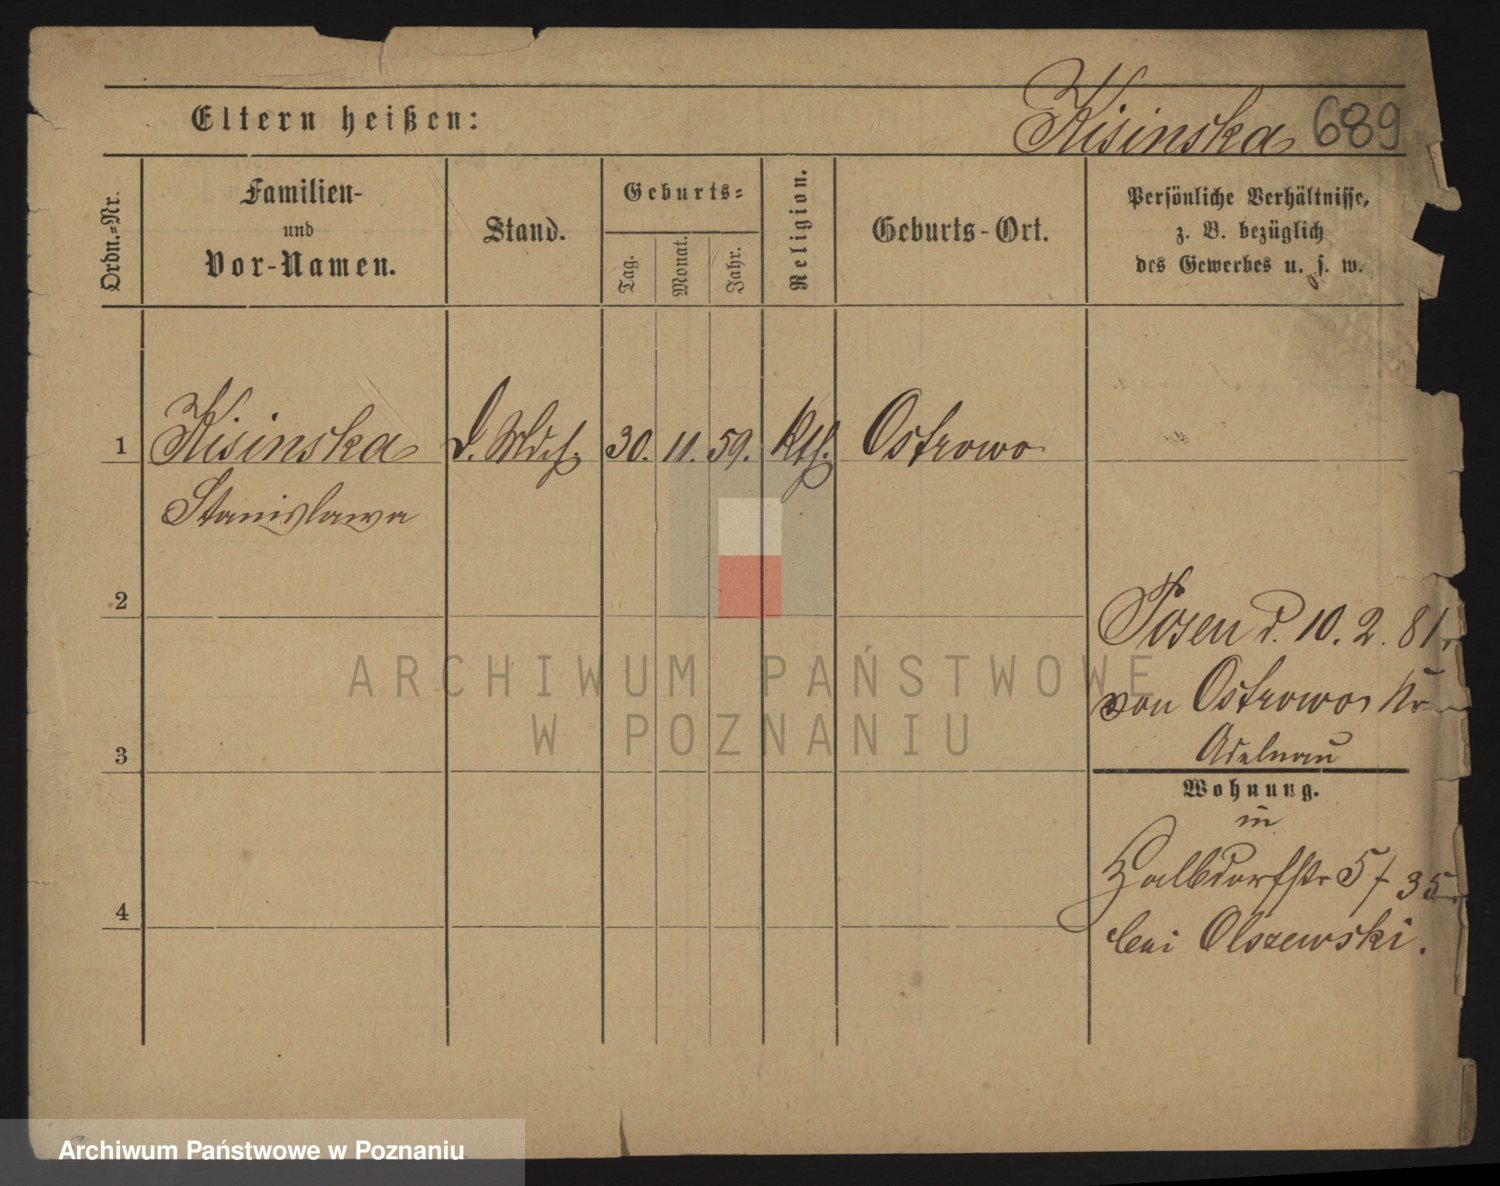 Eltern heißen:
Kisinska 689
Ordn.-Nr.
Familien-
und
Vor-Namen.
Stand.
Geburts-
Tag.
Monat.
Jahr.
Religion.
Geburts-Ort.
Persönliche Verhältnisse,
z. B. bezüglich
des Gewerbes u. s. w.
1 Kisinska D. Mdch. 30. 11. 59. Kth. Ostrowo
Stanislawa
2
Posen d. 10. 2. 81.
von Ostrowo Kr
Adelnau
3
Wohnung.
in
Halbdorfstr 5 / 35
bei Olszewski.
4
ARCHIWUM PAŃSTWOWE
W POZNANIU
Archiwum Państwowe w Poznaniu